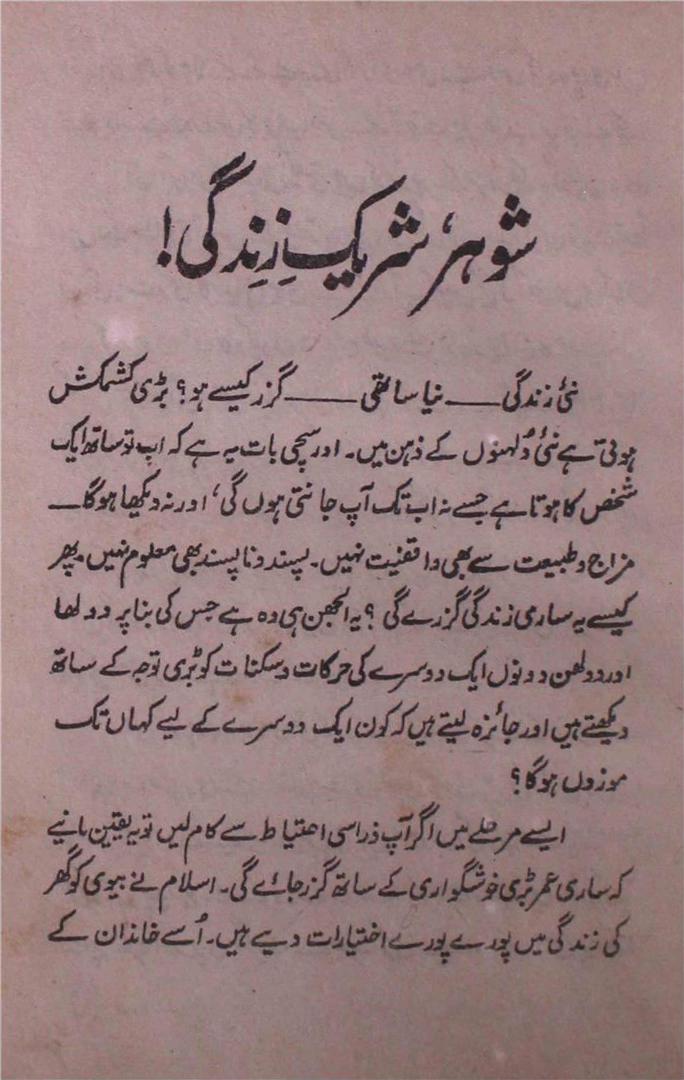 شوہر، شریکِ زندگی!
نئی زندگی ——— نیا ساتھی ——— گزر کیسے ہو؟ بڑی کشمکش
ہوتی ہے نئی دُلہنوں کے ذہن میں۔ اور سچی بات یہ ہے کہ اب تو ساتھ ایک
شخص کا ہوتا ہے جسے نہ اب تک آپ جانتی ہوں گی، اور نہ دیکھا ہوگا —
مزاج و طبیعت سے بھی واقفیت نہیں۔ پسند و ناپسند بھی معلوم نہیں۔ پھر
کیسے یہ ساری زندگی گزرے گی؟ یہ الجھن ہی وہ ہے جس کی بنا پر دولھا
اور دولھن دونوں ایک دوسرے کی حرکات و سکنات کو بڑی توجہ کے ساتھ
دیکھتے ہیں اور جائزہ لیتے ہیں کہ کون ایک دوسرے کے لیے کہاں تک
موزوں ہوگا؟
ایسے مرحلے میں اگر آپ ذرا سی احتیاط سے کام لیں تو یہ یقین مانیے
کہ ساری عمر بڑی خوشگواری کے ساتھ گزر جائے گی۔ اسلام نے بیوی کو گھر
کی زندگی میں پورے پورے اختیارات دیے ہیں۔ اُسے خاندان کے